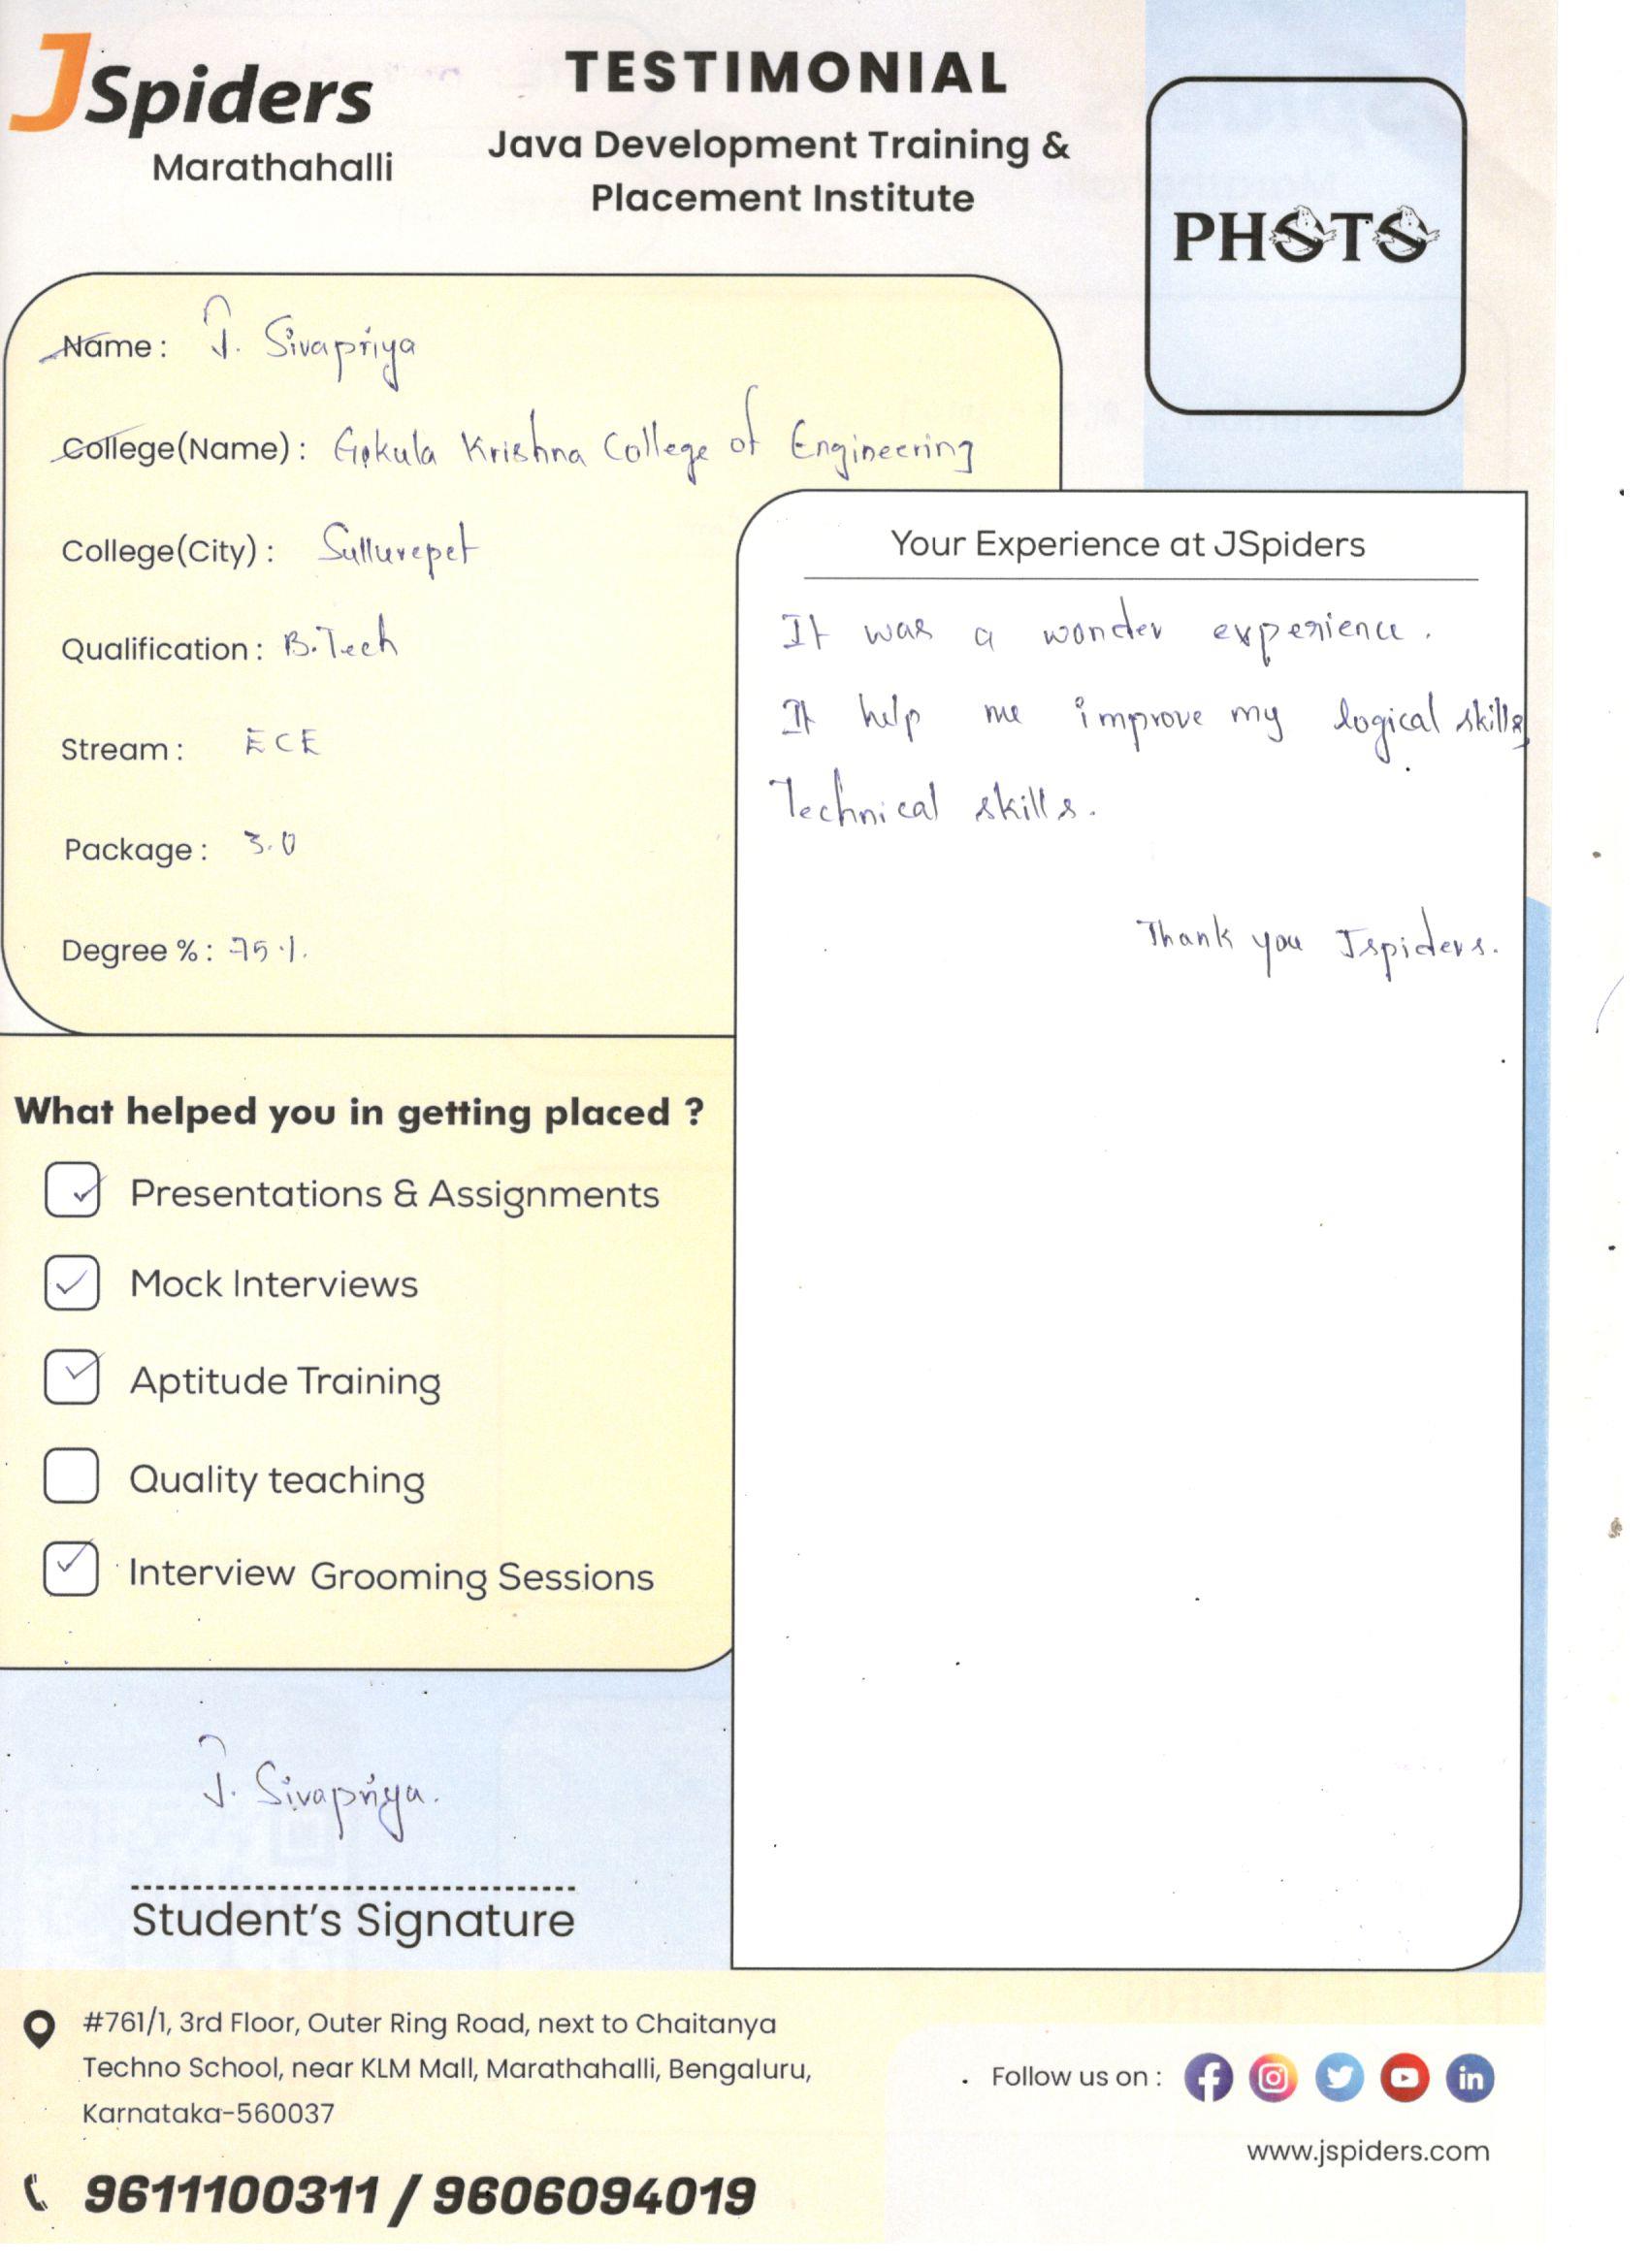 JSpiders
Marathahalli
TESTIMONIAL
Java Development Training &
Placement Institute
PHOTO
Name : J. Sivapriya
College(Name) : Gokula Krishna College of Engineering
College(City) : Sullurepet
Qualification : B.Tech
Stream : ECE
Package : 3.0
Degree % : 75%.
Your Experience at JSpiders
It was a wonder experience.
It help me improve my logical skills,
Technical skills.
Thank you Jspiders.
What helped you in getting placed ?
Presentations & Assignments
Mock Interviews
Aptitude Training
Quality teaching
Interview Grooming Sessions
J. Sivapriya.
Student's Signature
#761/1, 3rd Floor, Outer Ring Road, next to Chaitanya
Techno School, near KLM Mall, Marathahalli, Bengaluru,
Karnataka-560037
9611100311 / 9606094019
Follow us on :
www.jspiders.com